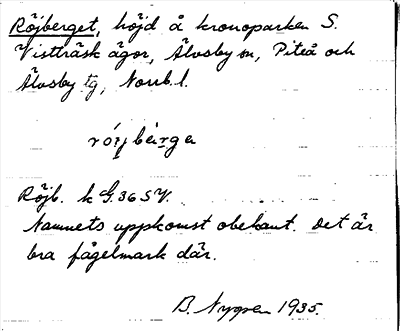 Röjberget, höjd å kronoparken S.
Vistträsk ägor, Älvsby sn, Piteå och
Älvsby tg, Norrb. l.
röjbärge
Röjb. k G. 36 SV.
Namnets uppkomst obekant. Det är
bra fågelmark där.
B. Nygren 1935.